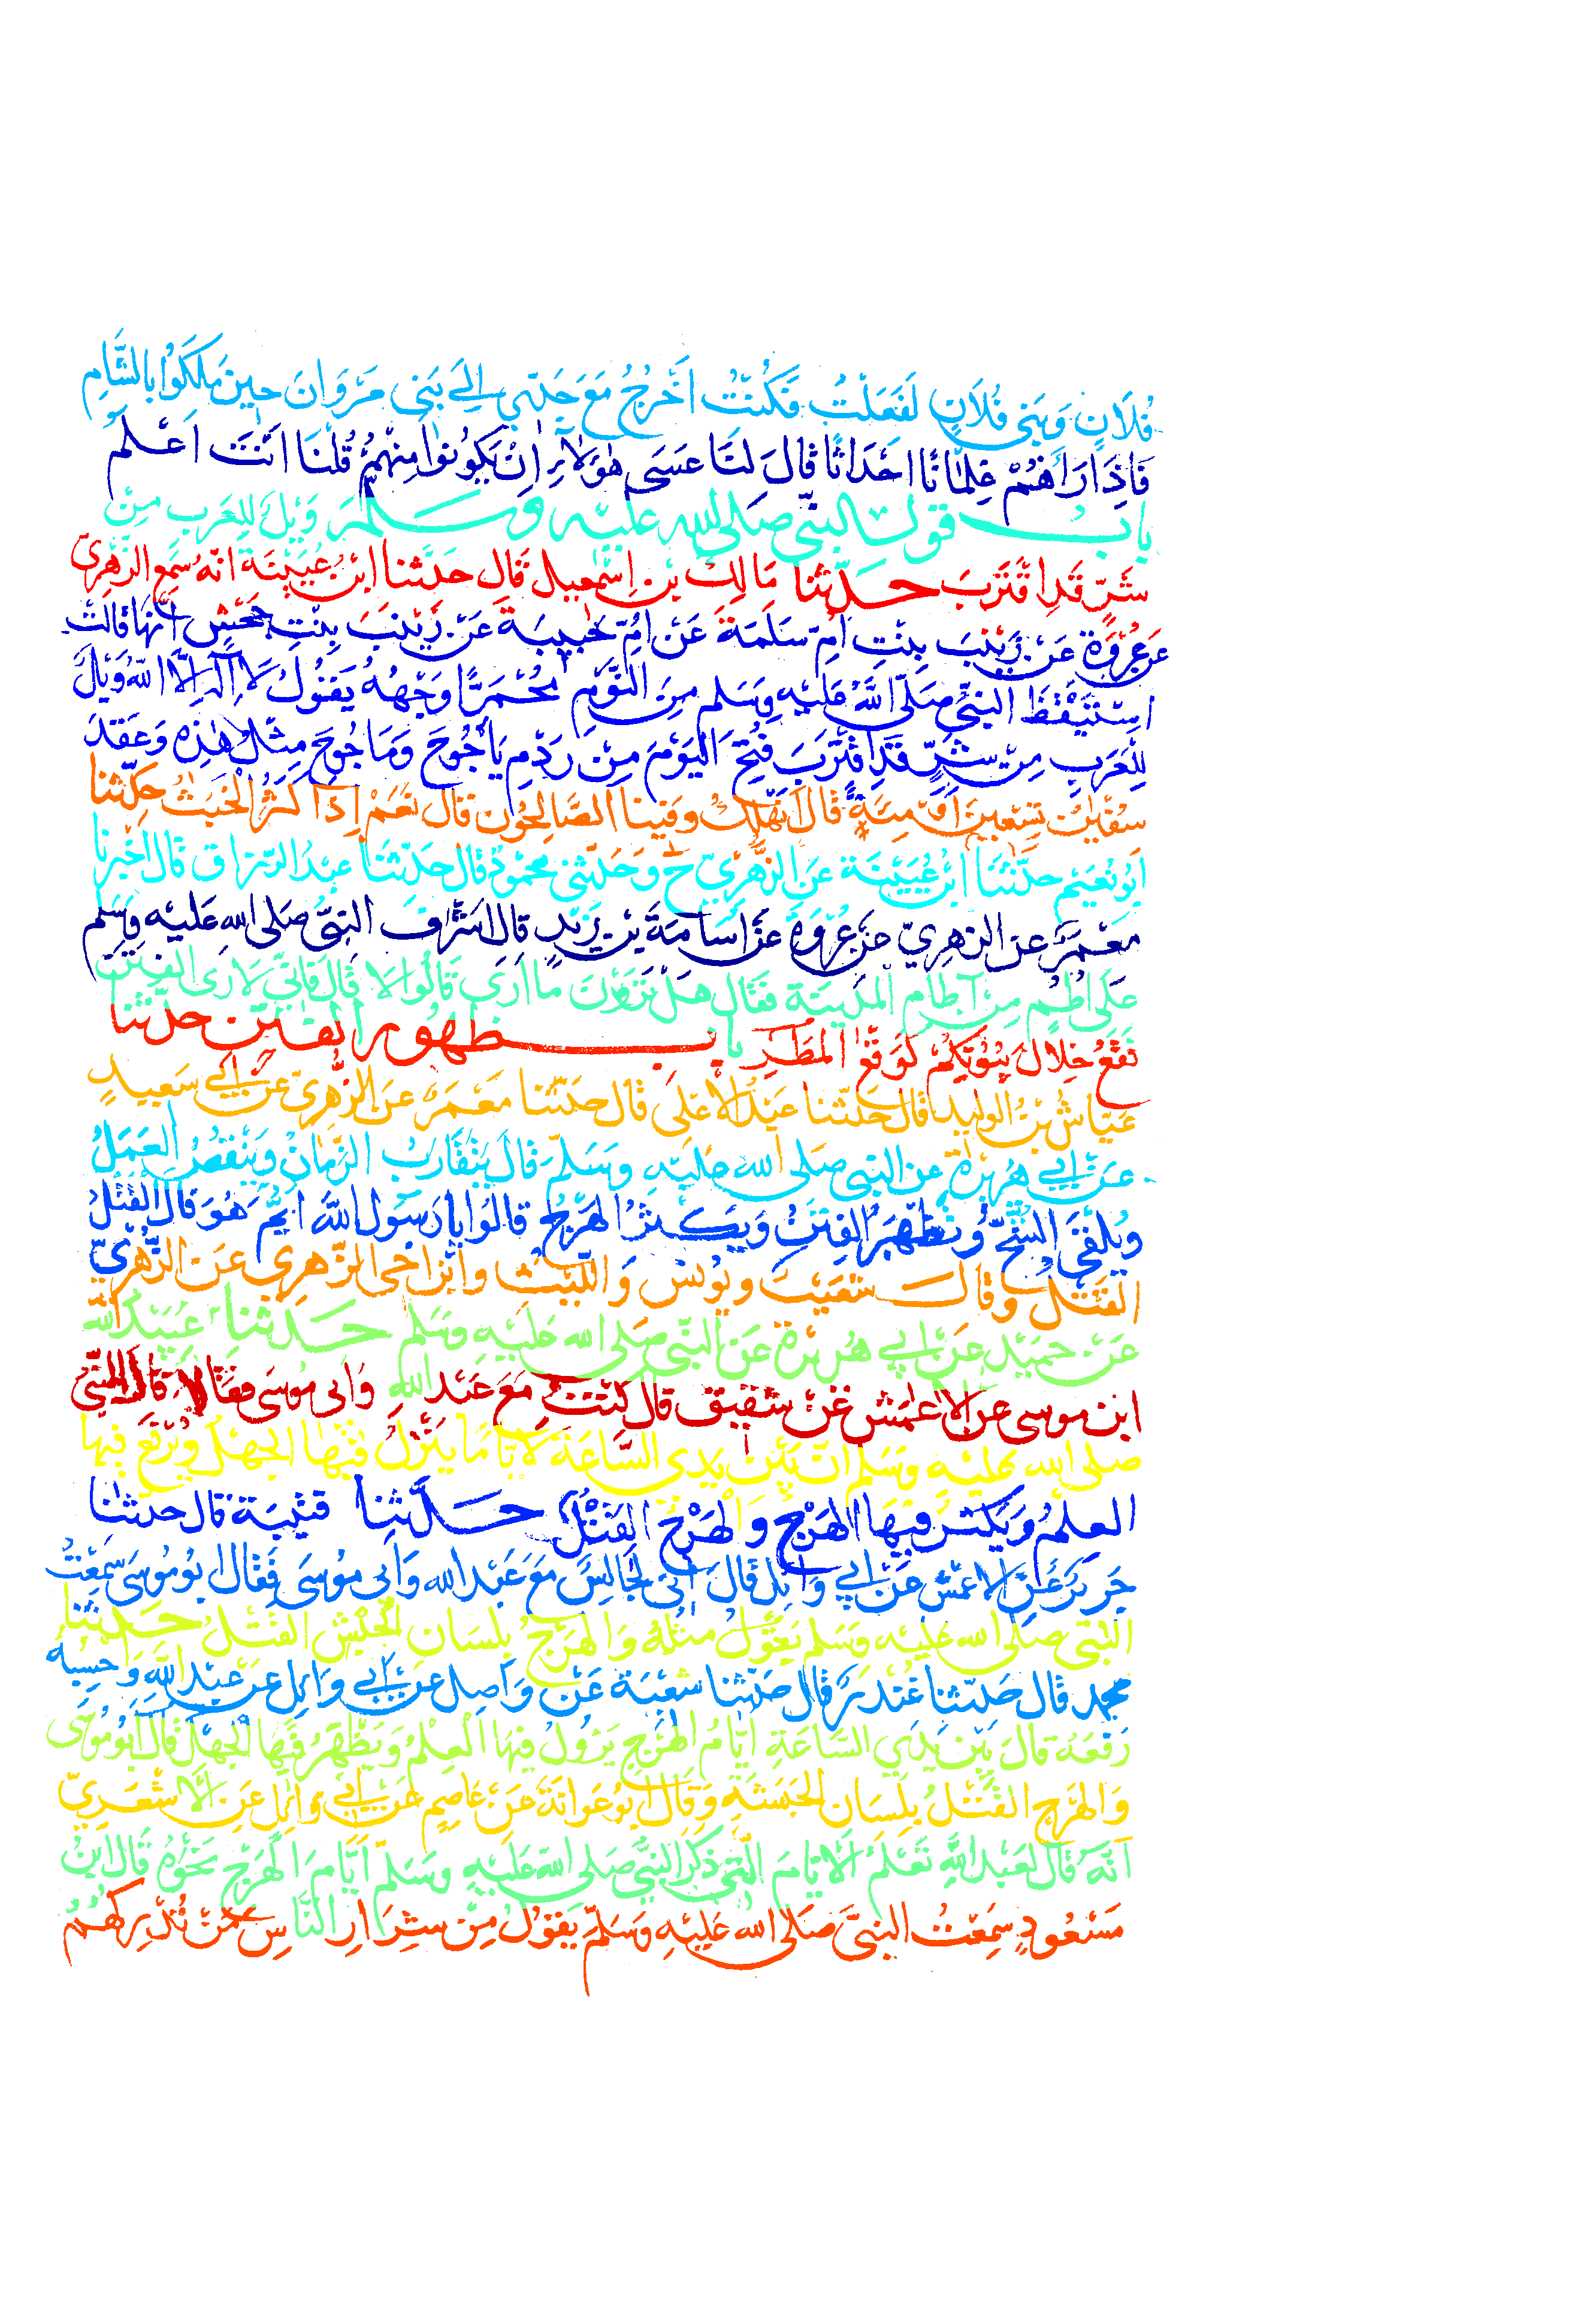 فُلَانٍ وَبَنِي فُلَانٍ لَفَعَلْتُ فَكُنْتُ اَخْرُجُ مَعَ جَدّي اِلَي بَنِي مَرْوَانَ حِينَ مَلَكَوُا بِالشَّامِ
فَاِذَا رَاَهُمْ غِلمَانًا اَحْدَاثًا قَالَ لَنَا عَسَى هٰؤلَاءِ اِنْ يَكوُنوُا مِنْهُمْ قُلْنَا اَنْتَ اَعْلَمُ
بابُ قول النبيّ صَلى الله عليْه وسَلمَ وَيْلٌ لِلعَربِ مِنْ
شَرّ قَدِ اقْتَرَبَ حدّثنا مَالِكُ بْن اِسْمٰعيل قَال حَدَّثنا ابْنُ عُيَيْنَةَ اَنّهُ سَمِعَ الزُّهريّ
عَن عُرْوَةَ عَنْ زَيْنَبَ بِنْتِ اُمِّ سَلَمَةَ عَنْ اُمِّ حَبيبَةَ عَنْ زَيْنَبَ بِنْتِ جَحْشٍ اَنهَا قَالَتْ
اسْتَيْقَظَ النبيُّ صَلّى اللَّهُ عَلَيْهِ وَسَلم مِنَ النَّوْمِ مُحْمَرًّا وَجْهُهُ يَقُوُلُ لَا اِلٰهَ اِلَّا اللّهُ وَيْلٌ
لِلْعَرَبِ مِنْ شَرٍّ قَدِ اقْتَرَبَ فُتِحَ الْيَوْمَ مِنْ رَدْمِ يَاْجُوجَ وَمَاجُوجَ مِثْلُ هٰذِهِ وَعَقَدَ
سُفْيٰنُ تِسْعِينَ اَوْ مِئَةً قَالَ اَنَهْلِكُ وَفينَا الصَّالِحُونَ قَال نَعَمْ اِذَا كَثُرَ الْخَبَثُ حدّثنا
اَبُو نُعَيْم حدّثنَا ابْنُ عُيَيْنَةَ عَنِ الزُّهْرِيّ ح وَحَدّثني مَحْمُودٌ قَال حَدّثنَا عبْدُ الرّزاق قَال اَخْبرنا
مَعْمَرٌ عَن الزهْريّ عَنْ عُرْوَةَ عَنْ اُسَامَةَ بْنِ زَيْدٍ قَال اَشْرَفَ النبيُّ صَلى الله عَليْه وَسَلم
عَلَى اُطُمٍ مِنْ آطَامِ المَدِينَةِ فَقَال هَلْ تَرَوْنَ مَا اَرَى قَالُوا لا قَال فَانّي لَاَرَى الفِتَنَ
تَقَعُ خِلَالَ بُيُوْتِكُمْ كَوَقْعِ المَطَرِ بَابُ ظهُورِ الفتَن حدّثنا
عَيّاشُ بْنُ الوليد قَال حَدّثنا عَبْدُ الاَعْلَى قَال حَدّثنا مَعْمَرٌ عَنِ الزُّهرِيّ عَنْ سَعِيدٍ
عَنْ اَبي هُرَيْرَةَ عَن النبي صَلى الله عَليْهِ وسَلمَ قَال يَتَقَارَبُ الزّمَانُ وَيَنْقُصُ الْعَمَلُ
وَيُلْقَى الشُّحُّ وَتَظْهَرُ الفِتَنُ وَيَكثُرُ الهَرْجُ قَالُوا يا رَسُول اللّهِ ايُّمَ هُوَ قَال الْقَتْلُ
القَتْلُ وَقَالَ شُعَيْبٌ ويُونُسُ وَاللّيْثُ وَابْنُ اَخِي الزُّهرِي عَنِ الزُّهْريّ
عَنْ حُمَيْدٍ عَنْ اَبي هُرَيْرَةَ عَنِ النّبي صَلى الله عَليْهِ وسَلم حَدّثنا عُبَيْدُ اللّه
ابن موسى عَن الاعْمَش عَنْ شقِيق قَال كُنْتُ مَعَ عَبْد الله وَابى مُوسَى فَقَالا قَالَ النّبيّ
صَلى الله عليْه وَسَلم انّ بَيْنَ يَدي السَّاعَةِ لَايّامًا يَنْزِلُ فيْهَا الجَهْلُ وَيُرْفَعُ فِيهَا
العِلمُ وَيَكثر فيهَا الهَرْجُ وَالهَرْجُ القَتْلُ حَدّثنا قُتيْبَة قال حدثنا
جَريرٌ عَن الاعْمَش عَنْ اَبي وَائِل قَالَ انّى لَجَالِسٌ مَعَ عَبْد الله وَاَبى مُوْسَى فَقَال ابُو مُوسَى سَمِعْتُ
النّبيّ صَلّى الله عَليْه وَسَلم يَقُوْلُ مِثْلهُ وَالهَرْجُ بِلِسَان الْحَبش القَتْلُ حَدّثنا
محمد قَال حَدّثنا غُنْدَرٌ قَال حَدّثنا شعْبَة عَنْ وَاصِل عَنْ اَبي وَائِل عَنْ عَبْدِ اللّه وَاَحْسِبُهُ
رَفَعَهُ قَالَ بَيْنَ يَدَي السَّاعَةِ اَيّامُ الهَرْجِ يَزُولُ فيهَا الْعِلْمُ وَيَظْهَرُ فِيْهَا الْجَهْلُ قَالَ اَبُو مُوْسَى
وَالهَرْج القَتْلُ بِلِسَان الْحَبَشَةِ وَقَال ابُو عَوَانَةَ عَنْ عَاصِمٍ عَنْ اَبي وَائِل عَنِ الاَشْعَريّ
اَنّهُ قَال لِعَبْد اللّهِ تَعْلَمُ الاَيّامَ الّتي ذَكَرَ النبيُّ صَلى اللّه عَليْهِ وَسَلمَ ايّامَ الْهَرْجِ نَحْوَهُ قَال ابْنُ
مَسْعُودٍ سَمِعْتُ النبيَّ صَلى الله عَليْهِ وَسَلمَ يَقُوْلُ مِنْ شِرَارِ النَّاسِ مَنْ تُدْرِكهُمُ